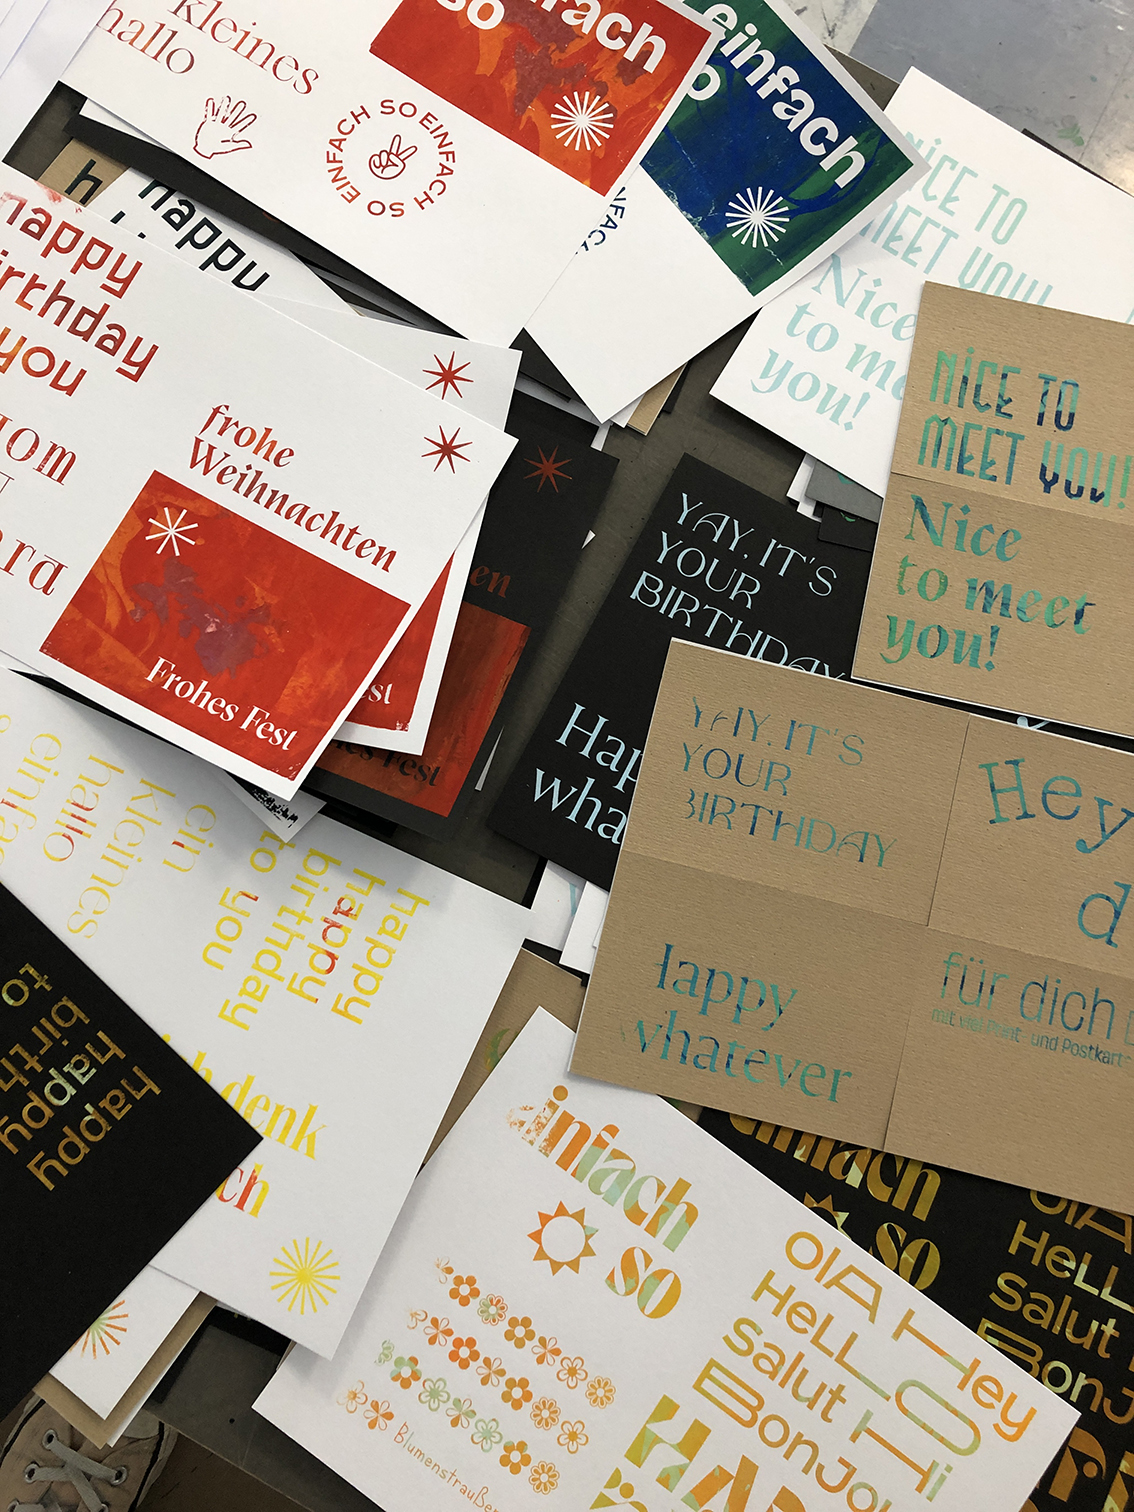 kleines
hallo
einfach
so
SO EINFACH SO EINFACH
einfach
happy
happy
birthday
you
frohe
Weihnachten
Frohes Fest
Fest
NiCE TO
MEET YOU!
Nice
to me
you!
NiCE TO
MEET YOU!
Nice
to meet
you!
YAY, IT'S
YOUR
BIRTHDAY
Hap
wha
YAY, IT'S
YOUR
BIRTHDAY
Hey
d
happy
whatever
für dich
mit viel Punt- und Postkart
ein
kleines
hallo
happy
happy
birthday
to you
denk
ch
happy
happy
birth
to
einfach
so
Blumenstraußer
einfach
so
OlA Hey
HeLLO
Salut Hi
BonJou
HAP
OlA
HeLL
Salut
BonJ